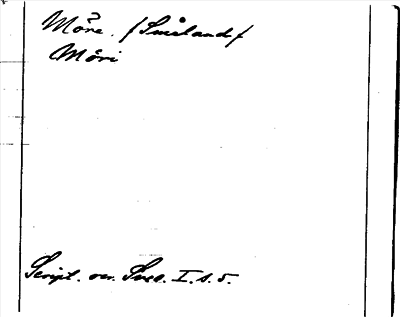 Möre. /Småland/
Möri
Script. rer. Svec. I. s. 5.